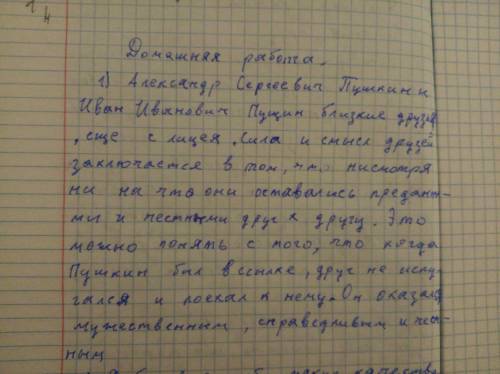 Домашняя работа.
1) Александр Сергеевич Пушкин и
Иван Иванович Пущин близкие друзья
, еще с лицея. Сила и смысл друзей
заключается в том, что нисмотря
ни на что они оставались преданы-
ми и честными друг к другу. Это
можно понять с того, что когда
Пушкин был в ссылке, друг не испу-
гался и поехал к нему. Он оказался
мужественным, справедливым и чес-
ным
качества